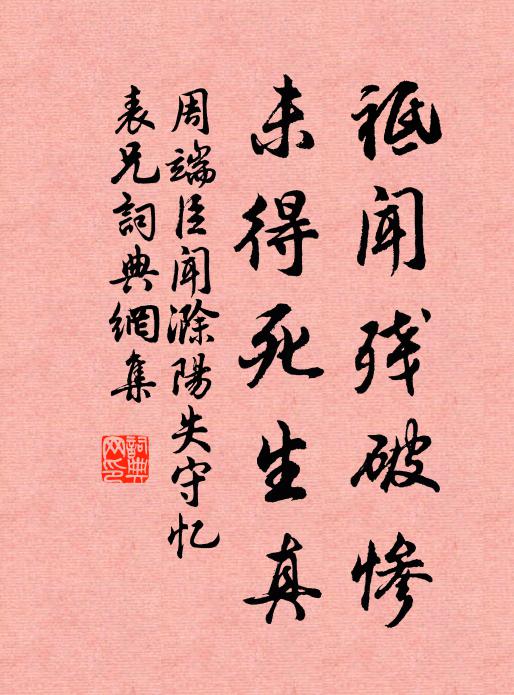 祗闻残破惨
未得死生真
周端臣闻滁陽失守忆
表兄詞典網集
詞典
网印